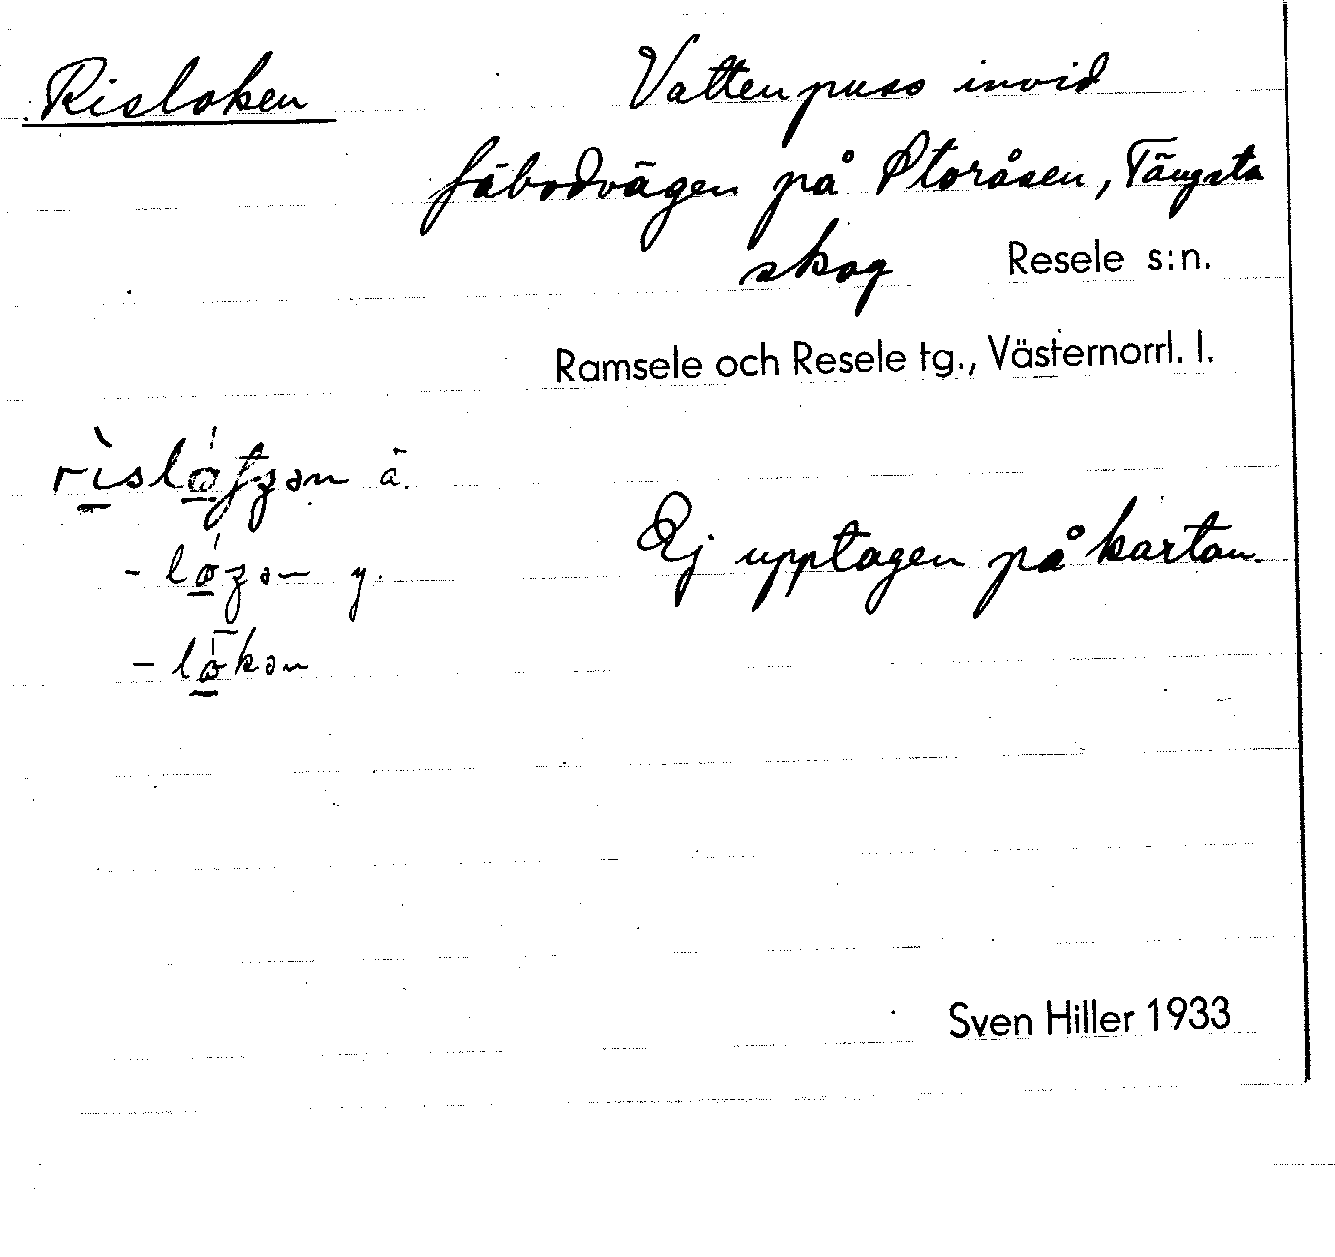 Risloken
Vattenpuss invid
fäbodvägen på Storåsen, Tängsta
skog Resele s:n.
Ramsele och Resele tg., Västernorrl. l.
ä.
Ej upptagen på kartan.
y.
Sven Hiller 1933